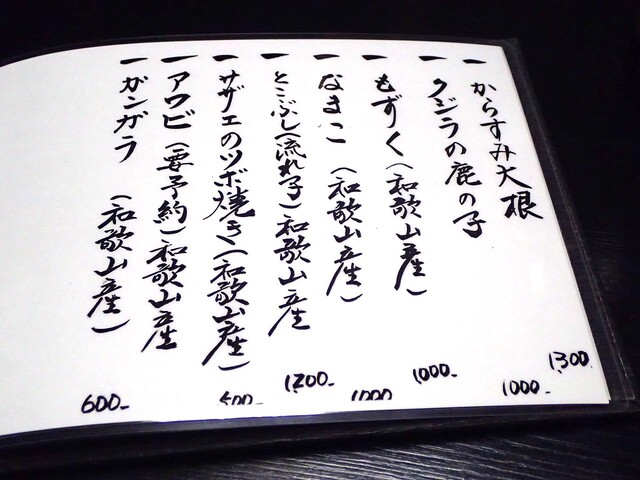 一 からすみ大根 1300
一 クジラの鹿の子 1000-
一 もずく(和歌山産) 1000-
一 なまこ (和歌山産) 1000
一 とこぶし(流れ子)和歌山産 1200-
一 サザエのツボ焼き(和歌山産)
一 アワビ(要予約)和歌山産
一 ガンガラ (和歌山産) 600-